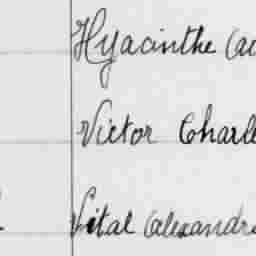 Hyacinthe Ca
Victor Charle
Vital Alexandr